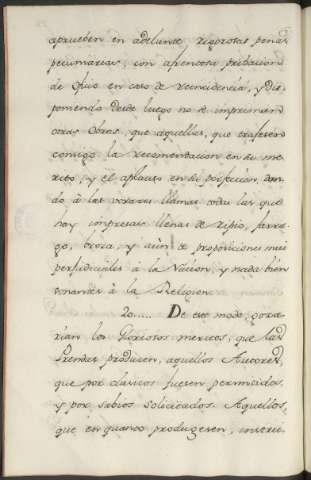 aprueben en adelante rigorosas penas
pecuniarias, con afrentosa pribacion
de Oficio en caso de reincidencia, y dis-
poniendo desde luego no se impriman
otras Obras, que aquellas, que trageren
consigo la recomendacion en su me-
rito, y el aplauso en su perfeccion, dan-
do à las voraces llamas todas las que
hay impresas llenas de ripio, farra-
go, broza, y aùn de proposiciones mui
perjudiciales à la Nacion, y nada bien
sonantes à la Religion.
20..... De este modo, goza-
rian los Gloriosos meritos, que las
Prendas producen, aquellos Autores,
que por clasicos fuesen permitidos,
y por sabios solicitados. Aquellos,
que en quanto produgesen, instrui-